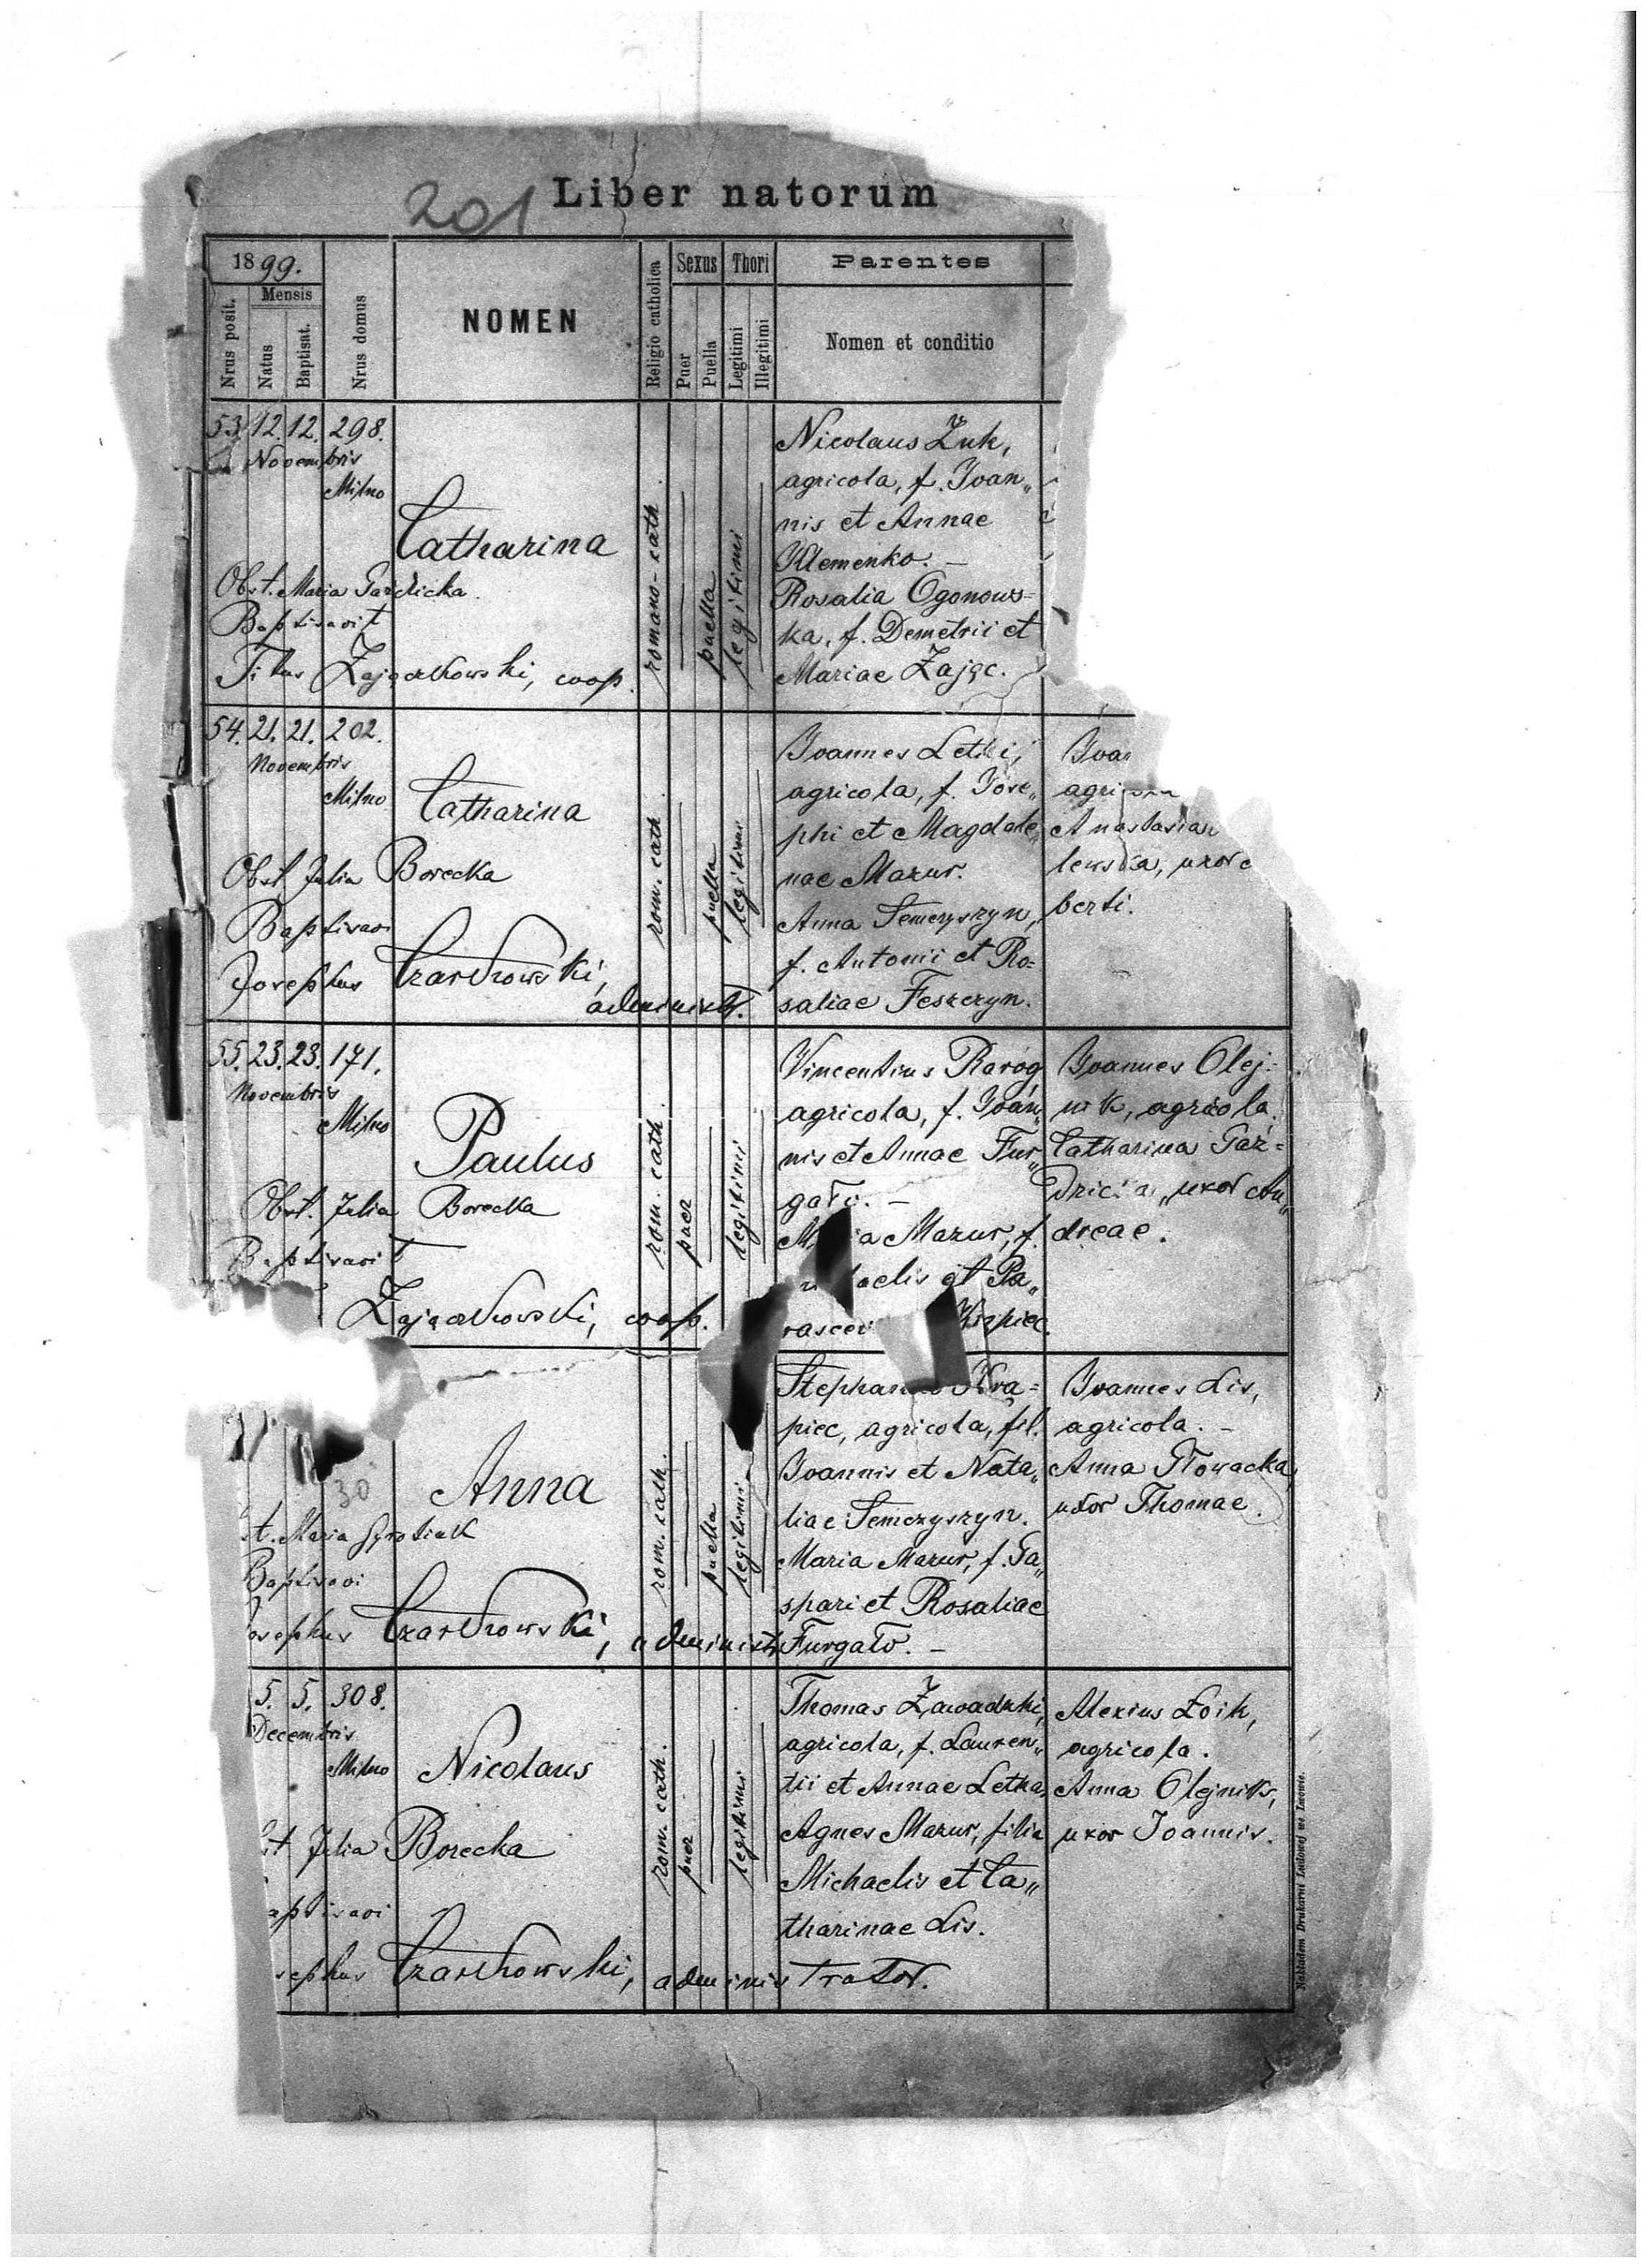 201 Liber natorum
1899.
Nrus posit.
Mensis
Natus
Baptisat.
Nrus domus
NOMEN
Religio catholica
Sexus
Puer
Puella
Thori
Legitimi
Illegitimi
Parentes
Nomen et conditio
53. 12. 12. 298.
Novembris
Milno
Catharina
Obst. Maria Gazdicka.
Baptisavit
Titus Zajączkowski, coop.
romano-cath.
puella
legitimi
Nicolaus Zuk,
agricola, f. Joan„
nis et Annae
Klemenko. —
Rosalia Ogonows=
ka, f. Demetrii et
Mariae Zając.
54. 21. 21. 202.
Novembris
Milno
Catharina
Obst. Julia Borecka
Baptisavi
Josephus Czarkowski,
administr.
rom. cath.
puella
legitimi
Joannes Letki,
agricola, f. Jose„
phi et Magdale„
nae Mazur.
Anna Semczyszyn,
f. Antonii et Ro=
saliae Feszczyn.
Joan
agricola
Anastasia
lewska, uxor
berti.
55. 23. 23. 171.
Novembris
Milno
Paulus
Obst. Julia Borecka
Baptisavit
Zajączkowski, coop.
rom. cath.
puer
legitimi
Vincentius Raróg,
agricola, f. Joan„
nis et Annae Fur„
gało. —
Maria Mazur, f.
Michaelis et Pa„
rascev Krąpiec.
Joannes Olej=
nik, agricola.
Catharina Gaź=
dzicka, uxor An„
dreae.
30
Anna
st. Maria Gyrotiuk
Baptisavi
Josephus Czarkowski, administr.
rom. cath.
puella
legitimi
Stephanus Krą=
piec, agricola, fil.
Joannis et Nata„
liae Semczyszyn.
Maria Mazur, f. Ga„
spari et Rosaliae
Furgało. —
Joannes Lis,
agricola. —
Anna Głowacka,
uxor Thomae.
5. 5. 308.
Decembris
Milno
Nicolaus
st Julia Borecka
aptisavi
sephus Czarkowski, administrator.
rom. cath.
puer
legitimi
Thomas Zawadzki,
agricola, f. Lauren„
tii et Annae Letka,
Agnes Mazur, filia
Michaelis et Ca„
tharinae Lis.
Alexius Łoik,
agricola.
Anna Olejnik,
uxor Joannis.
Nakładem Drukarni Ludowej we Lwowie.